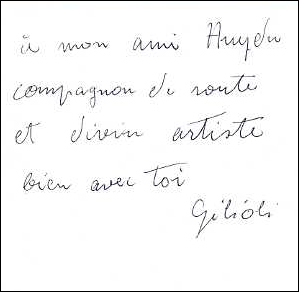 à mon ami Huydu
compagnon de route
et divin artiste
bien avec toi
Gilioli